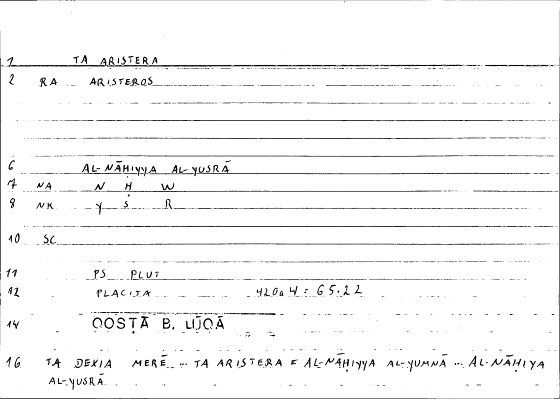 1 TA ARISTERA
2 RA ARISTEROS
6 AL-NĀḤIYYA AL-YUSRĀ
7 NA N Ḥ W
8 NK Y S R
10 SC
11 PS PLUT
12 PLACITA 420a4 = 65.22
14 QOSṬĀ B. LŪQĀ
16 TA DEXIA MERĒ ... TA ARISTERA = AL-NĀḤIYYA AL-YUMNĀ ... AL-NĀḤIYA
AL-YUSRĀ